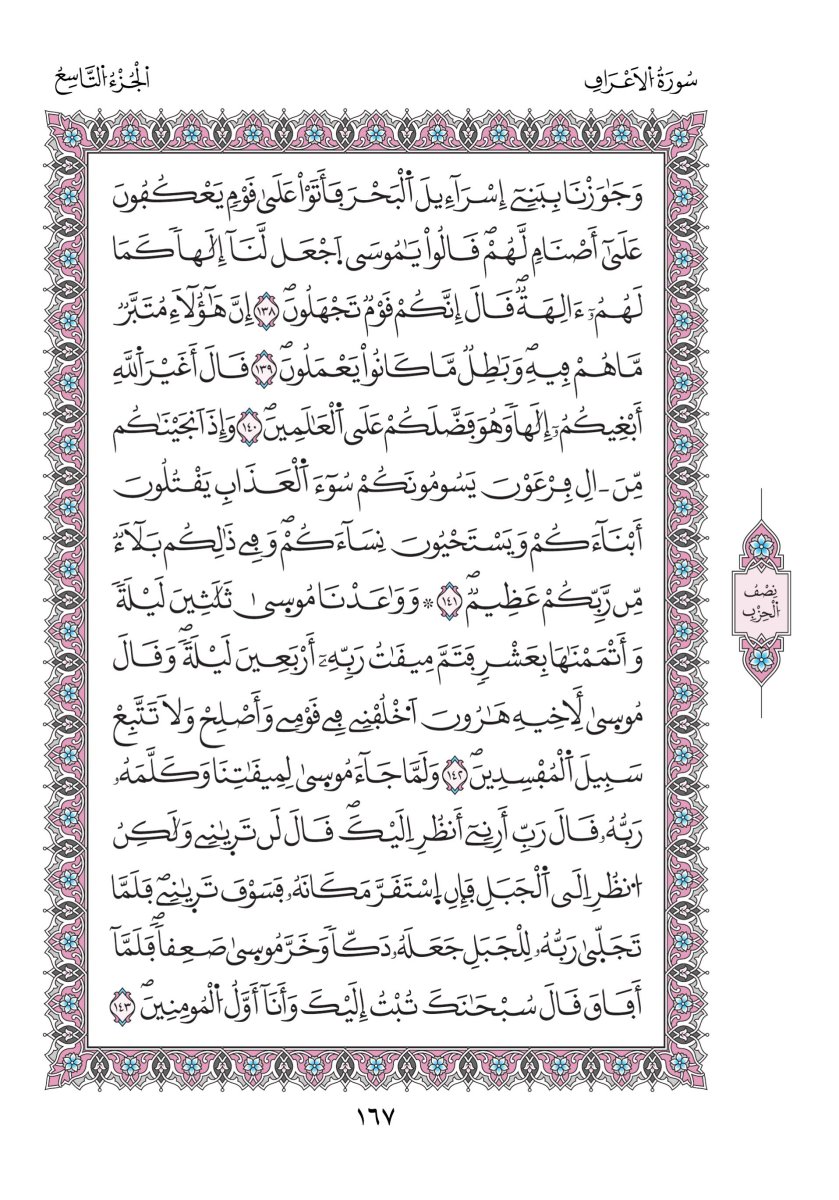 سُورَةُ اَ۬لَاعْرَافِ
اَ۬لْجُزْءُ اُ۬لتَّاسِعُ
وَجَٰوَزْنَا بِبَنِےٓ إِسْرَآءِيلَ اَ۬لْبَحْرَ فَأَتَوْاْ عَلَىٰ قَوْمٖ يَعْكُفُونَ
عَلَىٰٓ أَصْنَامٖ لَّهُمْۖ قَالُواْ يَٰمُوسَى اَ۪جْعَل لَّنَآ إِلَٰهاٗ كَمَا
لَهُمُۥٓ ءَالِهَةٞۖ قَالَ إِنَّكُمْ قَوْمٞ تَجْهَلُونَۖ ١٣٨ إِنَّ هَٰٓؤُلَآءِ مُتَبَّرٞ
مَّا هُمْ فِيهِۖ وَبَٰطِلٞ مَّا كَانُواْ يَعْمَلُونَۖ ١٣٩ قَالَ أَغَيْرَ اَ۬للَّهِ
أَبْغِيكُمُۥٓ إِلَٰهاٗ وَهُوَ فَضَّلَكُمْ عَلَى اَ۬لْعَٰلَمِينَۖ ١٤٠ وَإِذَ اَنجَيْنَٰكُم
مِّنَ اٰلِ فِرْعَوْنَ يَسُومُونَكُمْ سُوٓءَ اَ۬لْعَذَابِ يَقْتُلُونَ
أَبْنَآءَكُمْ وَيَسْتَحْيُونَ نِسَآءَكُمْۖ وَفِے ذَٰلِكُم بَلَآءٞ
مِّن رَّبِّكُمْ عَظِيمٞۖ ١٤١ ۞ وَوَٰعَدْنَا مُوسۭيٰ ثَلَٰثِينَ لَيْلَةٗ
وَأَتْمَمْنَٰهَا بِعَشْرٖ فَتَمَّ مِيقَٰتُ رَبِّهِۦٓ أَرْبَعِينَ لَيْلَةٗۖ وَقَالَ
مُوسۭيٰ لِأَخِيهِ هَٰرُونَ اَ۟خْلُفْنِے فِے قَوْمِے وَأَصْلِحْ وَلَا تَتَّبِعْ
سَبِيلَ اَ۬لْمُفْسِدِينَۖ ١٤٢ وَلَمَّا جَآءَ مُوسۭيٰ لِمِيقَٰتِنَا وَكَلَّمَهُۥ
رَبُّهُۥ قَالَ رَبِّ أَرِنِےٓ أَنظُرِ اِلَيْكَۖ قَالَ لَن تَرۭيٰنِے وَلَٰكِنُ
اُ۟نظُرِ اِلَى اَ۬لْجَبَلِ فَإِنِ اِ۪سْتَقَرَّ مَكَانَهُۥ فَسَوْفَ تَرۭيٰنِےۖ فَلَمَّا
تَجَلّۭيٰ رَبُّهُۥ لِلْجَبَلِ جَعَلَهُۥ دَكّاٗ وَخَرَّ مُوسۭيٰ صَعِقاٗۖ فَلَمَّآ
أَفَاقَ قَالَ سُبْحَٰنَكَ تُبْتُ إِلَيْكَ وَأَنَآ أَوَّلُ اُ۬لْمُومِنِينَۖ ١٤٣
نِصْفُ
اُ۬لْحِزْبِ
١٦٧